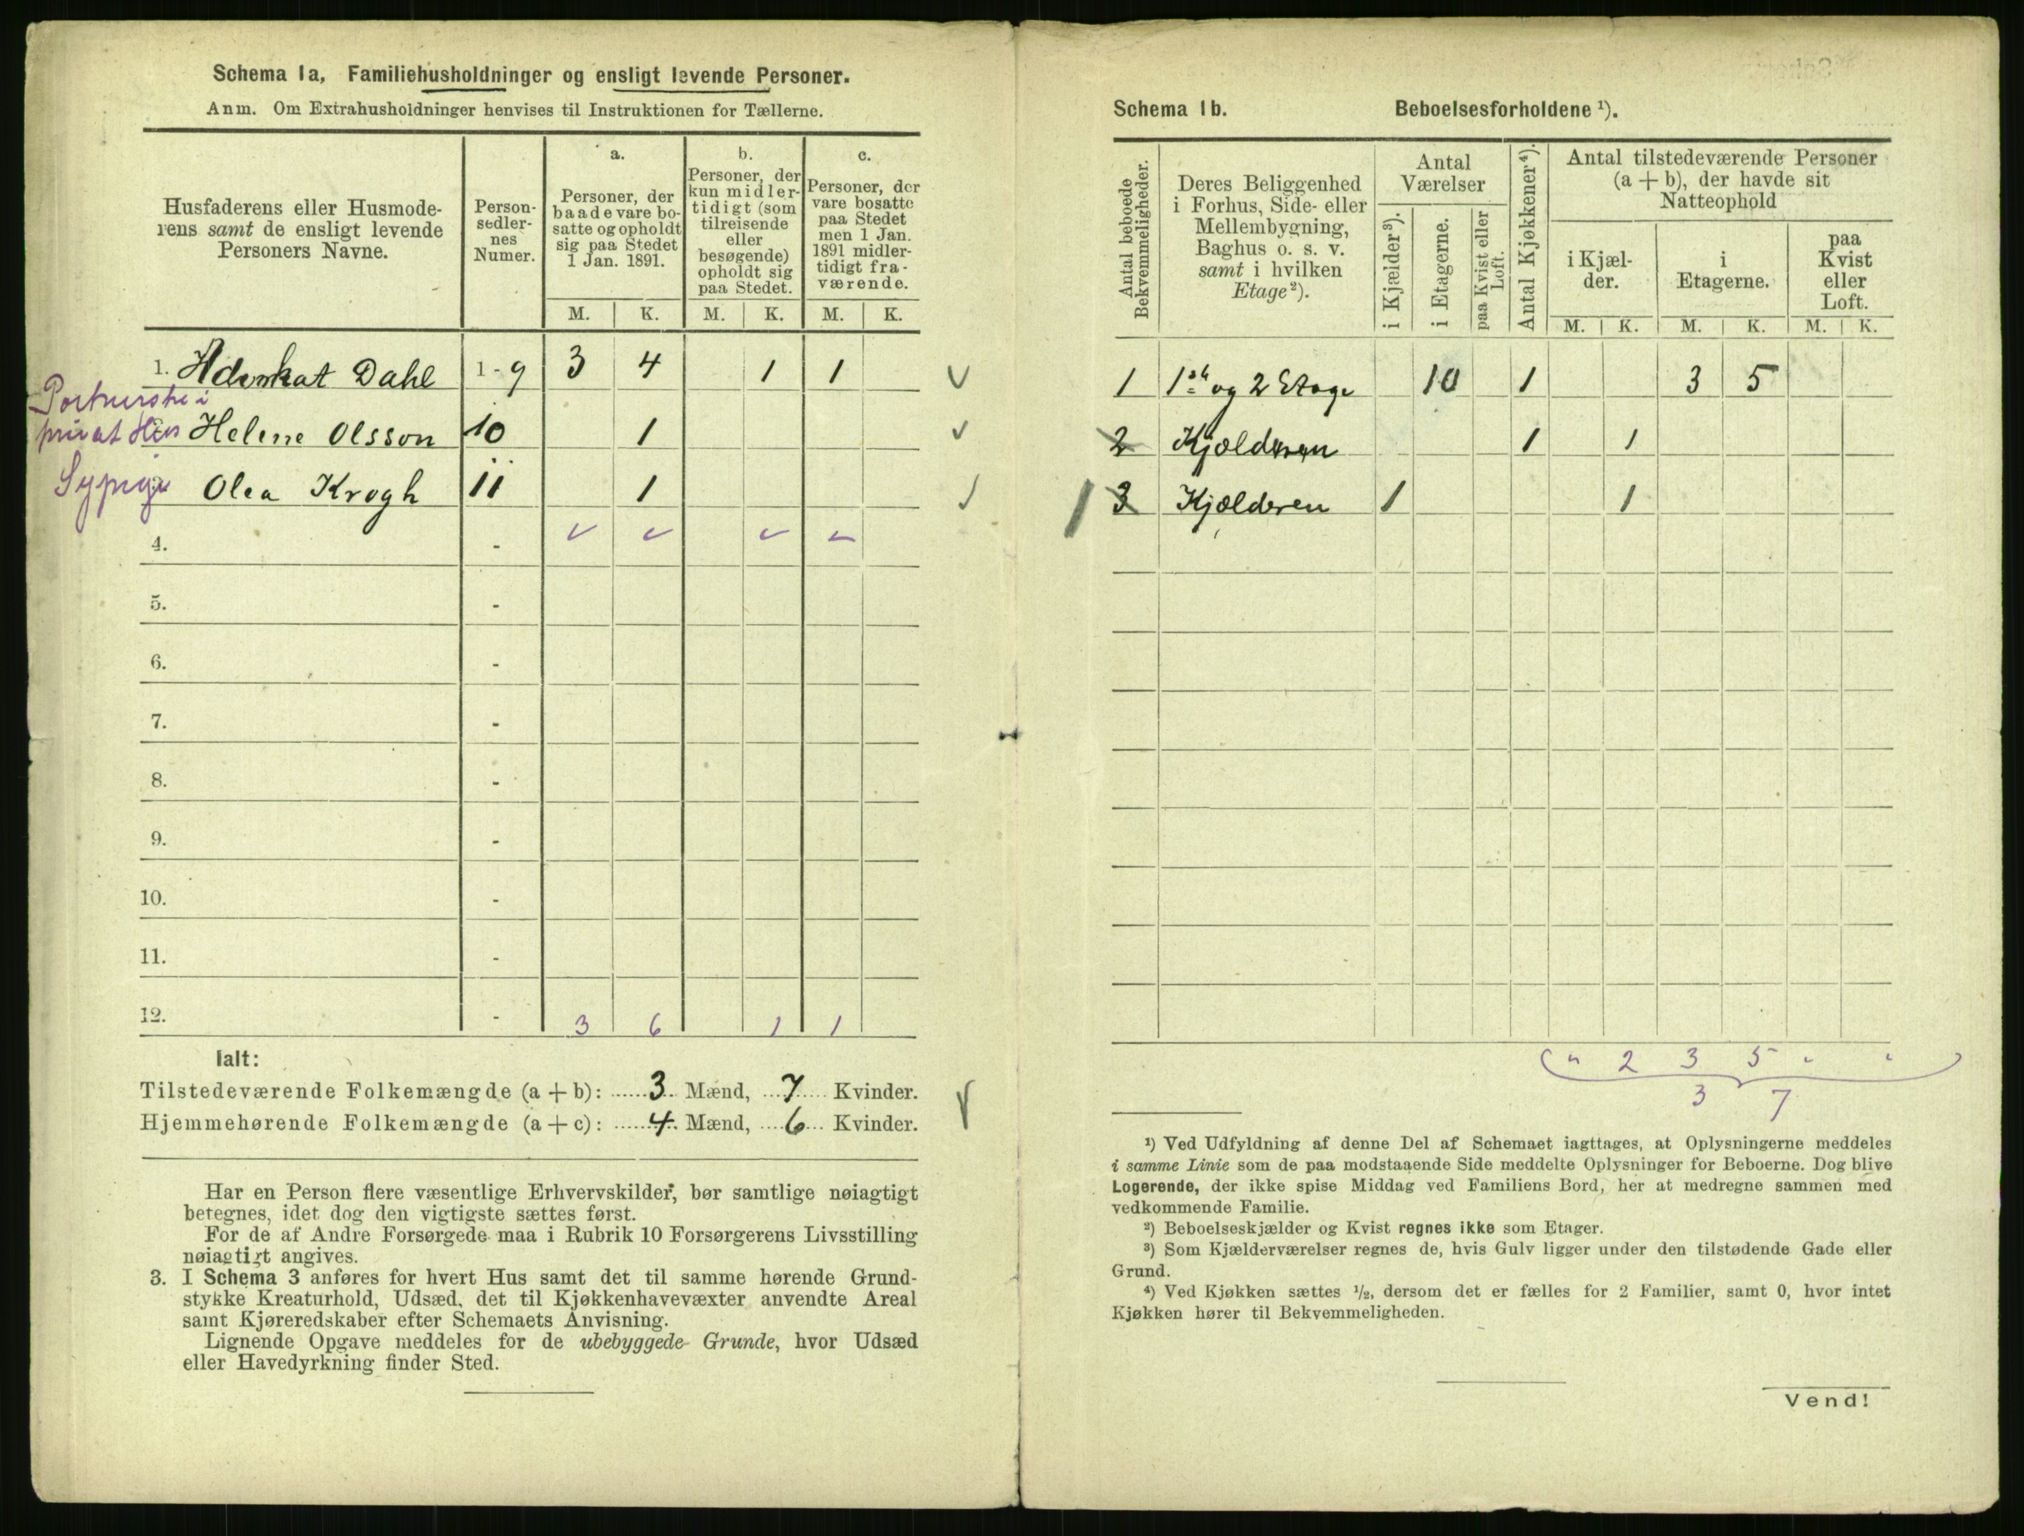 Schema 1a, Familiehusholdninger og ensligt levende Personer.
Anm. Om Extrahusholdninger henvises til Instruktionen for Tællerne.
Husfaderens eller Husmode-
rens samt de ensligt levende
Personers Navne.
Person-
sedler-
nes
Numer.
a.
Personer, der
baade vare bo-
satte og opholdt
sig paa Stedet
1 Jan. 1891.
b.
Personer, der
kun midler-
tidigt (som
tilreisende
eller
besøgende)
opholdt sig
paa Stedet.
c.
Personer, der
vare bosatte
paa Stedet
men 1 Jan.
1891 midler-
tidigt fra-
værende.
M. K. M. K. M. K.
1. Advokat Dahl 1 - 9 3 4 1 1
Portnerske i
privat Hus Helene Olsson 10 1
Sypige Olea Krogh 11 1
4. -
5. -
6. -
7. -
8. -
9. -
10. -
11. -
12. - 3 6 1 1
Ialt:
Tilstedeværende Folkemængde (a + b): 3 Mænd, 7 Kvinder.
Hjemmehørende Folkemængde (a + c): 4 Mænd, 6 Kvinder.
Har en Person flere væsentlige Erhvervskilder, bør samtlige nøiagtigt
betegnes, idet dog den vigtigste sættes først.
For de af Andre Forsørgede maa i Rubrik 10 Forsørgerens Livsstilling
nøiagtigt angives.
3. I Schema 3 anføres for hvert Hus samt det til samme hørende Grund-
stykke Kreaturhold, Udsæd, det til Kjøkkenhavevæxter anvendte Areal
samt Kjøreredskaber efter Schemaets Anvisning.
Lignende Opgave meddeles for de ubebyggede Grunde, hvor Udsæd
eller Havedyrkning finder Sted.
Schema 1b. Beboelsesforholdene ¹).
Antal beboede
Bekvemmeligheder.
Deres Beliggenhed
i Forhus, Side- eller
Mellembygning,
Baghus o. s. v.
samt i hvilken
Etage ²).
Antal
Værelser
i Kjælder ³).
i Etagerne.
paa Kvist eller
Loft.
Antal Kjøkkener ⁴).
Antal tilstedeværende Personer
(a + b), der havde sit
Natteophold
i Kjæl-
der.
i
Etagerne.
paa
Kvist
eller
Loft.
M. K. M. K. M. K.
1 1ste og 2 Etage 10 1 3 5
2 Kjælderen 1 1
1 3 Kjælderen 1 1
" 2 3 5 " "
3 7
¹) Ved Udfyldning af denne Del af Schemaet iagttages, at Oplysningerne meddeles
i samme Linie som de paa modstaaende Side meddelte Oplysninger for Beboerne. Dog blive
Logerende, der ikke spise Middag ved Familiens Bord, her at medregne sammen med
vedkommende Familie.
²) Beboelseskjælder og Kvist regnes ikke som Etager.
³) Som Kjælderværelser regnes de, hvis Gulv ligger under den tilstødende Gade eller
Grund.
⁴) Ved Kjøkken sættes ½, dersom det er fælles for 2 Familier, samt 0, hvor intet
Kjøkken hører til Bekvemmeligheden.
Vend!